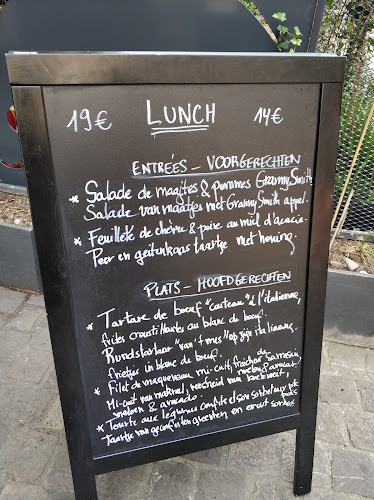 19€ LUNCH 14€
ENTRÉES - VOORGERECHTEN
* Salade de maatjes & pommes Granny Smith
Salade van maatjes met Granny Smith appel.
* Feuilleté de chèvre & poire au miel d'acacia.
Peer en geitenkaas taartje met honing.
PLATS - HOOFDGERECHTEN
* Tartare de bœuf "couteau" à l'italienne,
frites croustillantes au blanc de bœuf.
Rundstartaar "van 't mes" op zijn italiaans,
frietjes in blanc de bœuf.
* Filet de maquereau mi-cuit, fraîcheur de sarrasin,
& avocat.
Mi-cuit van makreel, van boekweit,
& avocado.
* Tourte aux légumes confits et son sorbet petit pois
Taartje van geconfijten groenten en erwt sorbet